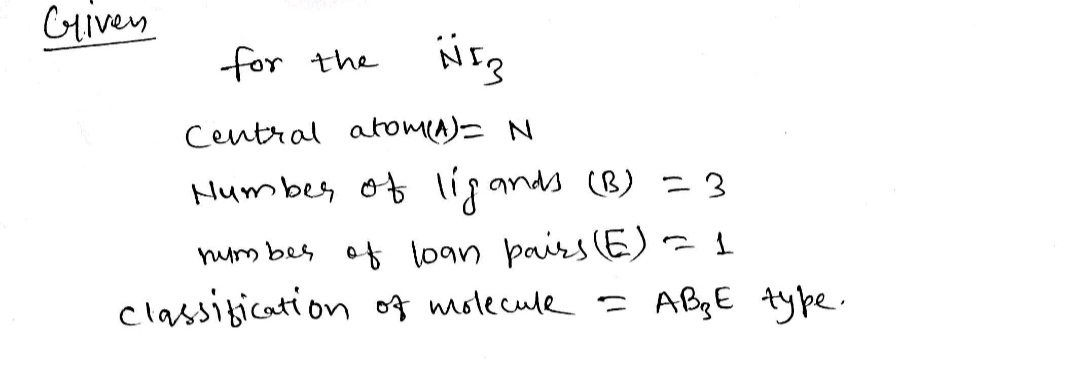 Given
for the N̈I₃
Central atom(A)= N
Number of ligands (B) = 3
number of loan pairs(E) = 1
classification of molecule = AB₃E type.